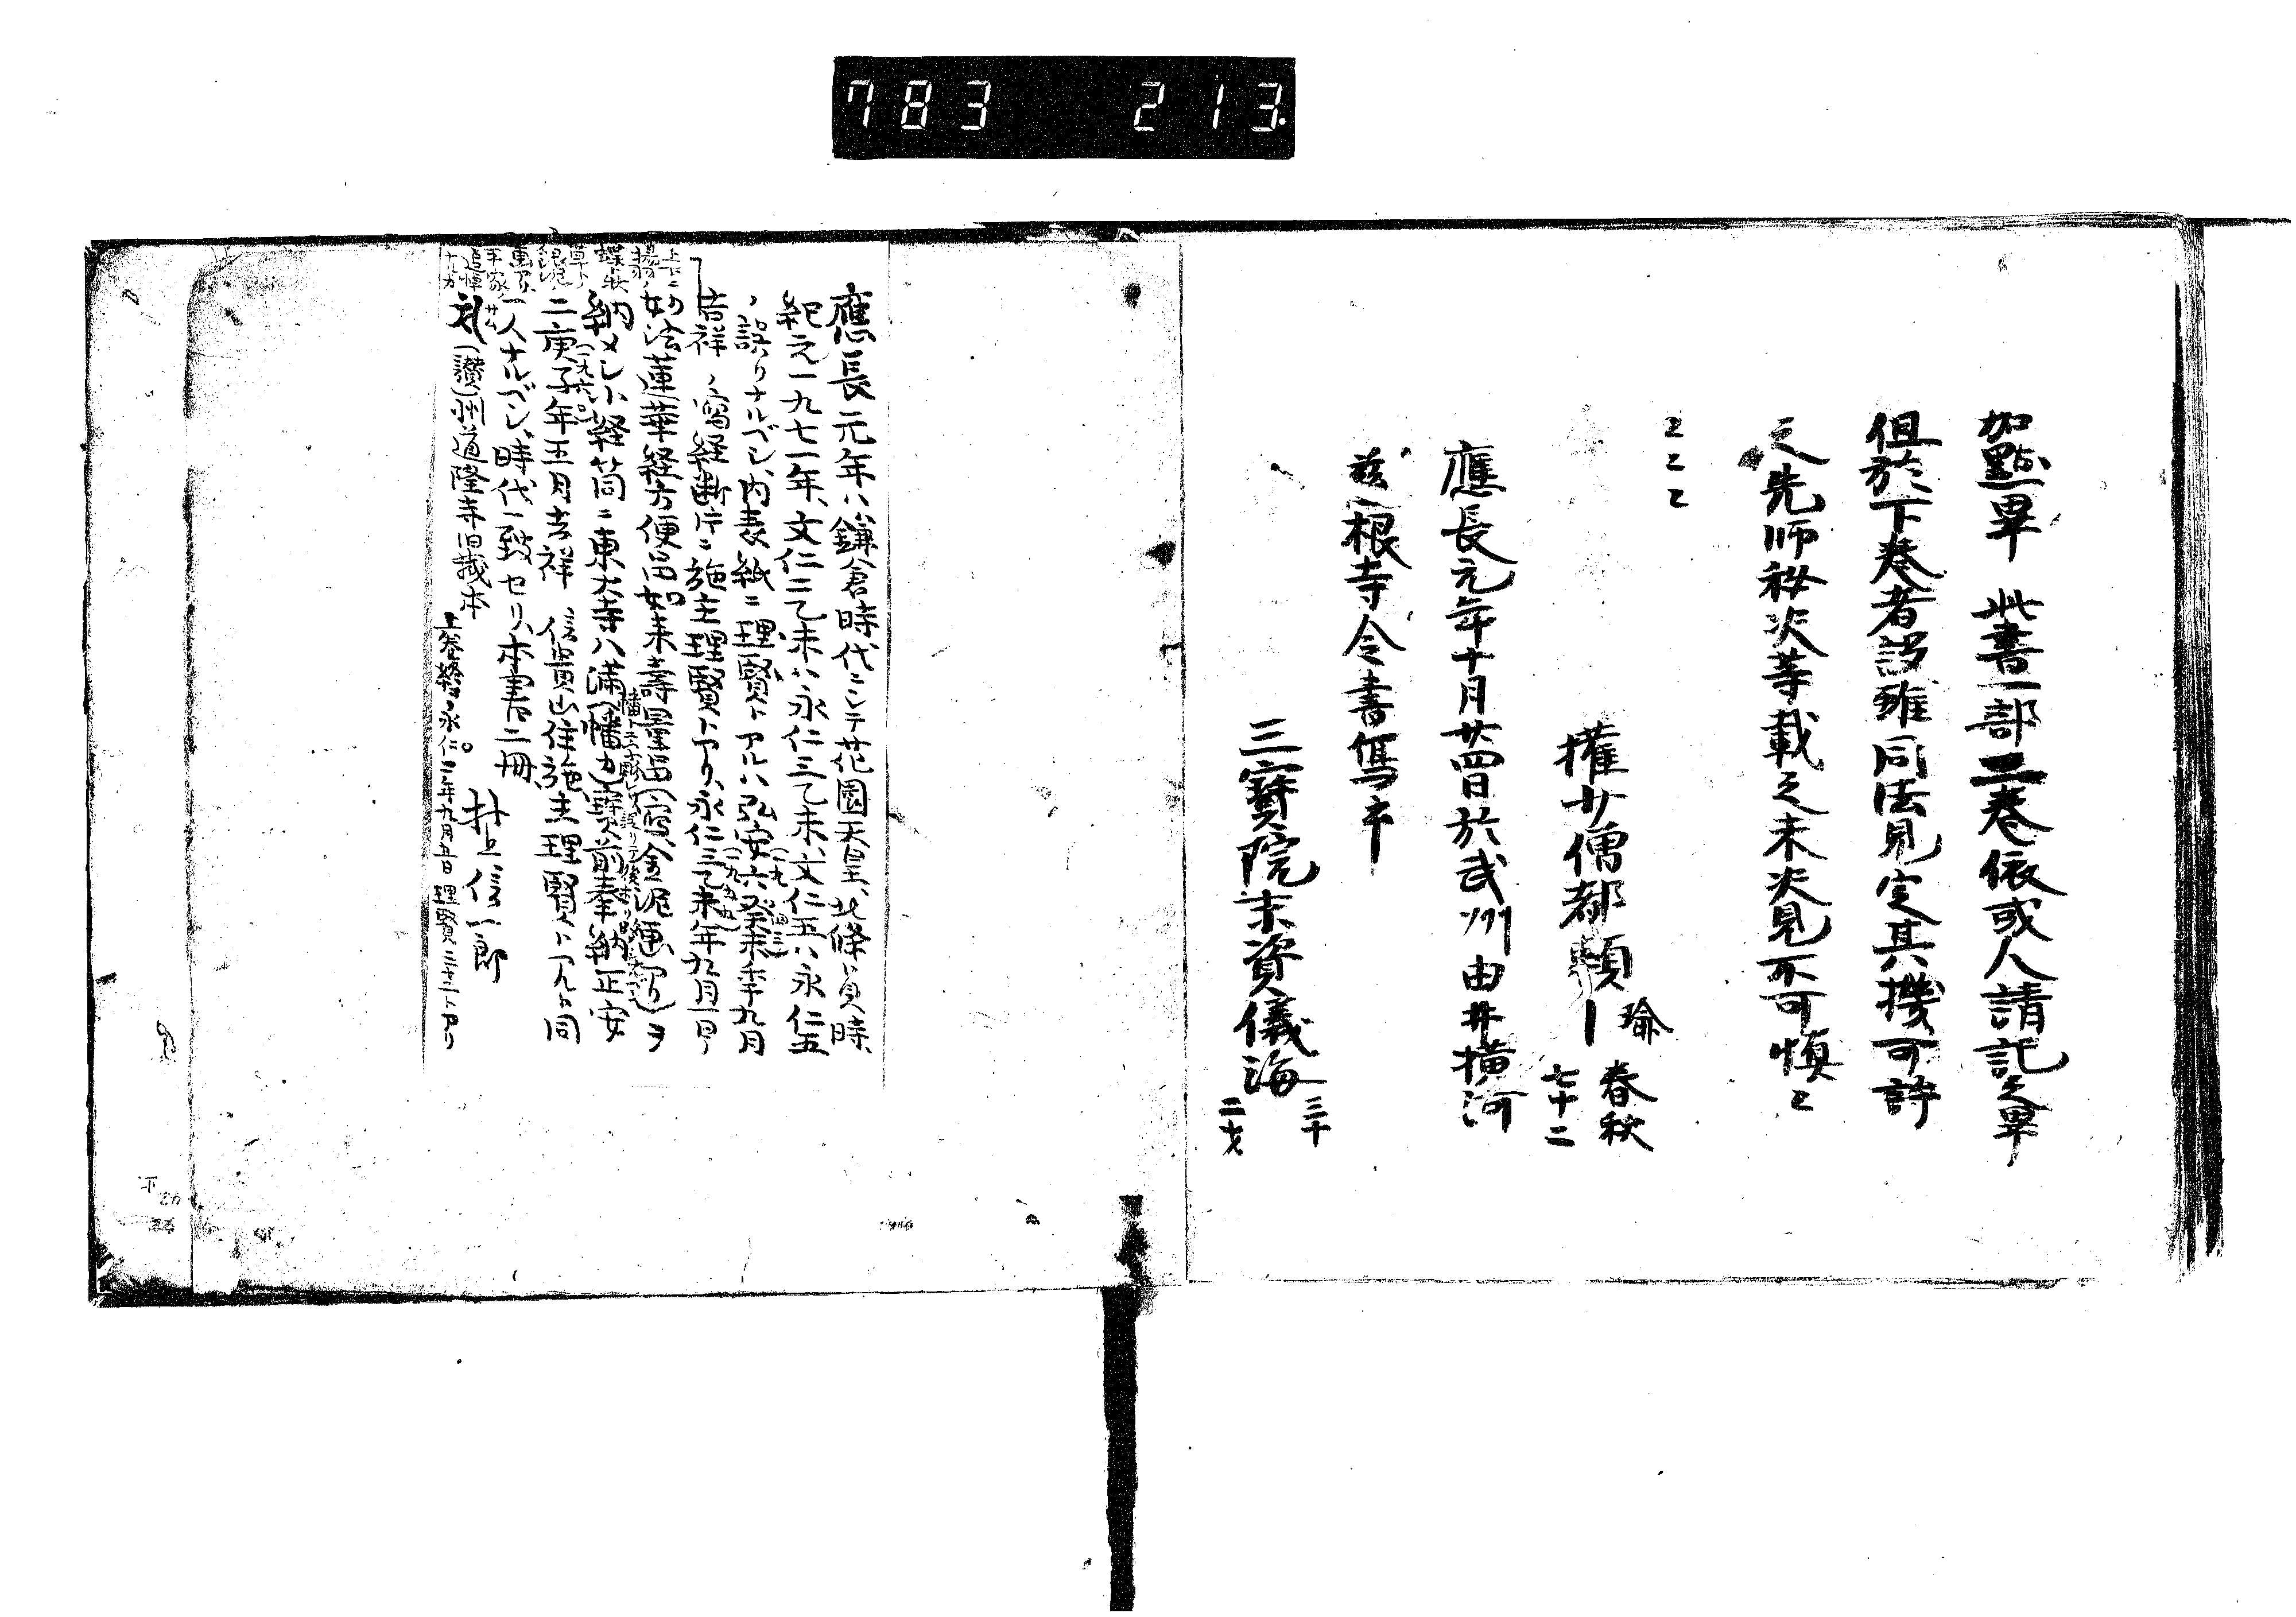 783 213.
加點畢 此書一部二巻依或人請記之畢
但於下巻者設雖同法見定其機可許
之先師秘决等載之未决見不可慎〻
〻〻〻
權少僧都頼瑜 春秋七十二
應長元年十月廿四日於武州由井横河
慈根寺令書寫卒
三寳院末資儀海 三十二才
應長元年ハ鎌倉時代ニシテ花園天皇、北條貞時、
紀元一九七一年、文仁三乙未ハ永仁三乙未、文仁五ハ永仁五
ノ誤リナルベシ、内表紙ニ理賢トアルハ弘安六癸未年九月
吉祥ノ寫経断片ニ施主理賢トアリ、永仁三乙未年九月一日
妙法蓮華経方便品、如来壽量品(寫、金泥画アリ)ヲ
納メシ小経筒ニ東大寺八満(幡カ)寳前奉納正安
二庚子年五月吉祥 信貴山住施主理賢トアルト同
一人ナルベシ、時代一致セリ、本書二冊
礼(讃)州道隆寺旧蔵本
井上信一郎
上巻終ヲ永仁三年九月五日 理賢三十三トアリ